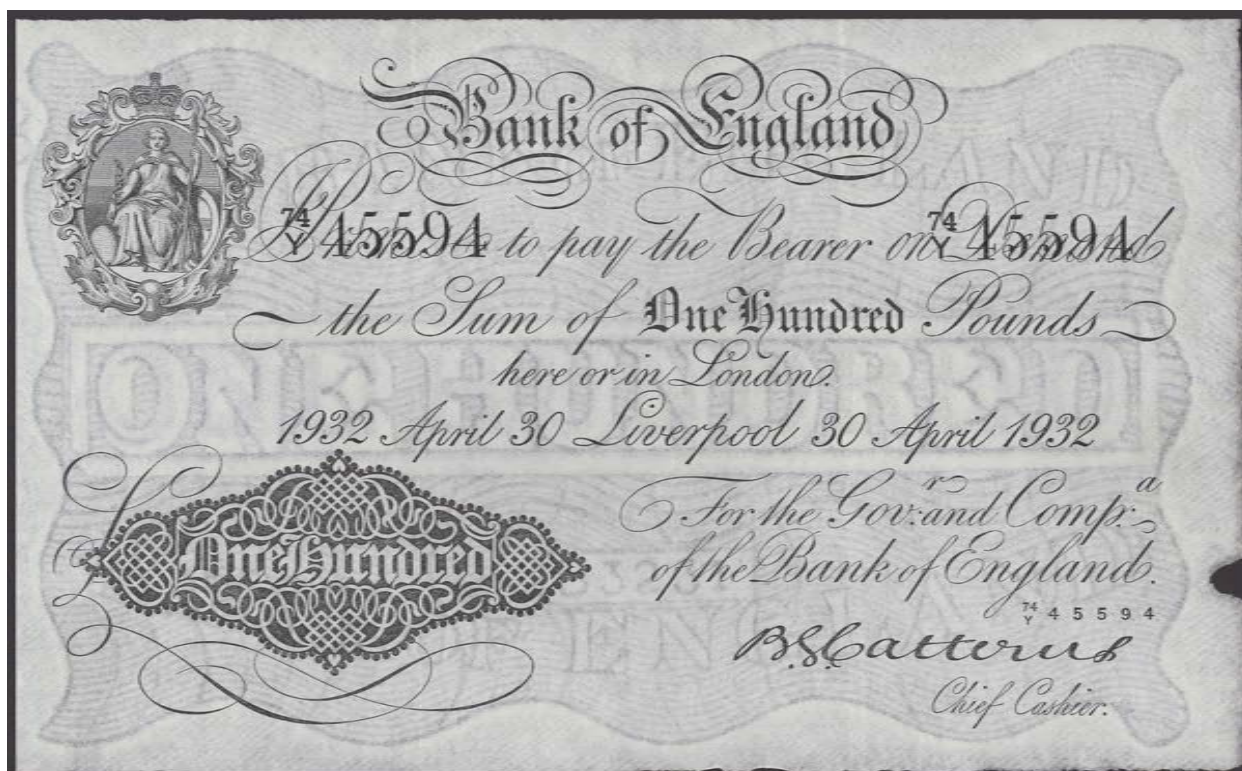 Bank of England
74/Y 45594 74/Y 45594
I Promise to pay the Bearer on Demand
the Sum of One Hundred Pounds
here or in London.
1932 April 30 Liverpool 30 April 1932
For the Gov:r and Comp:a
of the Bank of England.
£ One Hundred
74/Y 45594
B.G. Catterns
Chief Cashier.
ONE HUNDRED